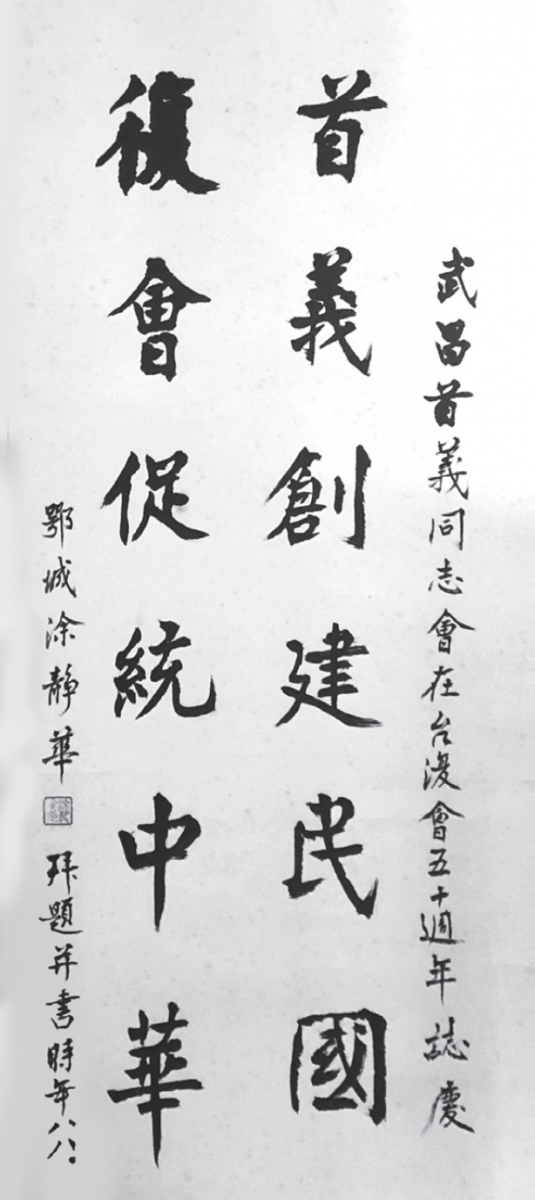 武昌首義同志會在台復會五十週年誌慶
首義創建民國
復會促統中華
鄂城涂靜華 拜題并書時年八八